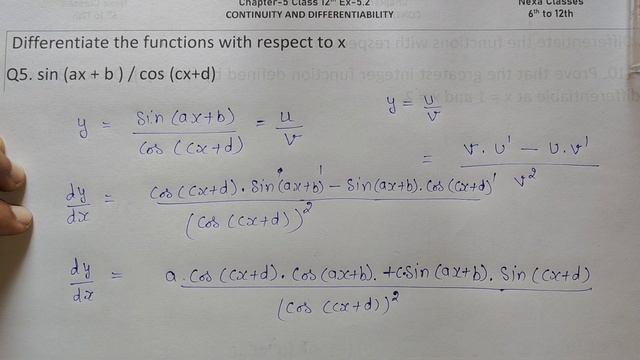 Chapter-5 Class 12th Ex-5.2
Nexa Classes
CONTINUITY AND DIFFERENTIABILITY
6th to 12th
Differentiate the functions with respect to x
Q5. sin (ax + b ) / cos (cx+d)
y = Sin (ax+b) / Cos (cx+d) = u/v
y = u/v
= v. u' - u.v' / v²
dy/dx = Cos (cx+d). Sin (ax+b)' - Sin (ax+b). Cos (cx+d)' / (Cos (cx+d))²
dy/dx = a. Cos (cx+d). Cos (ax+b). + c.Sin (ax+b). Sin (cx+d) / (Cos (cx+d))²